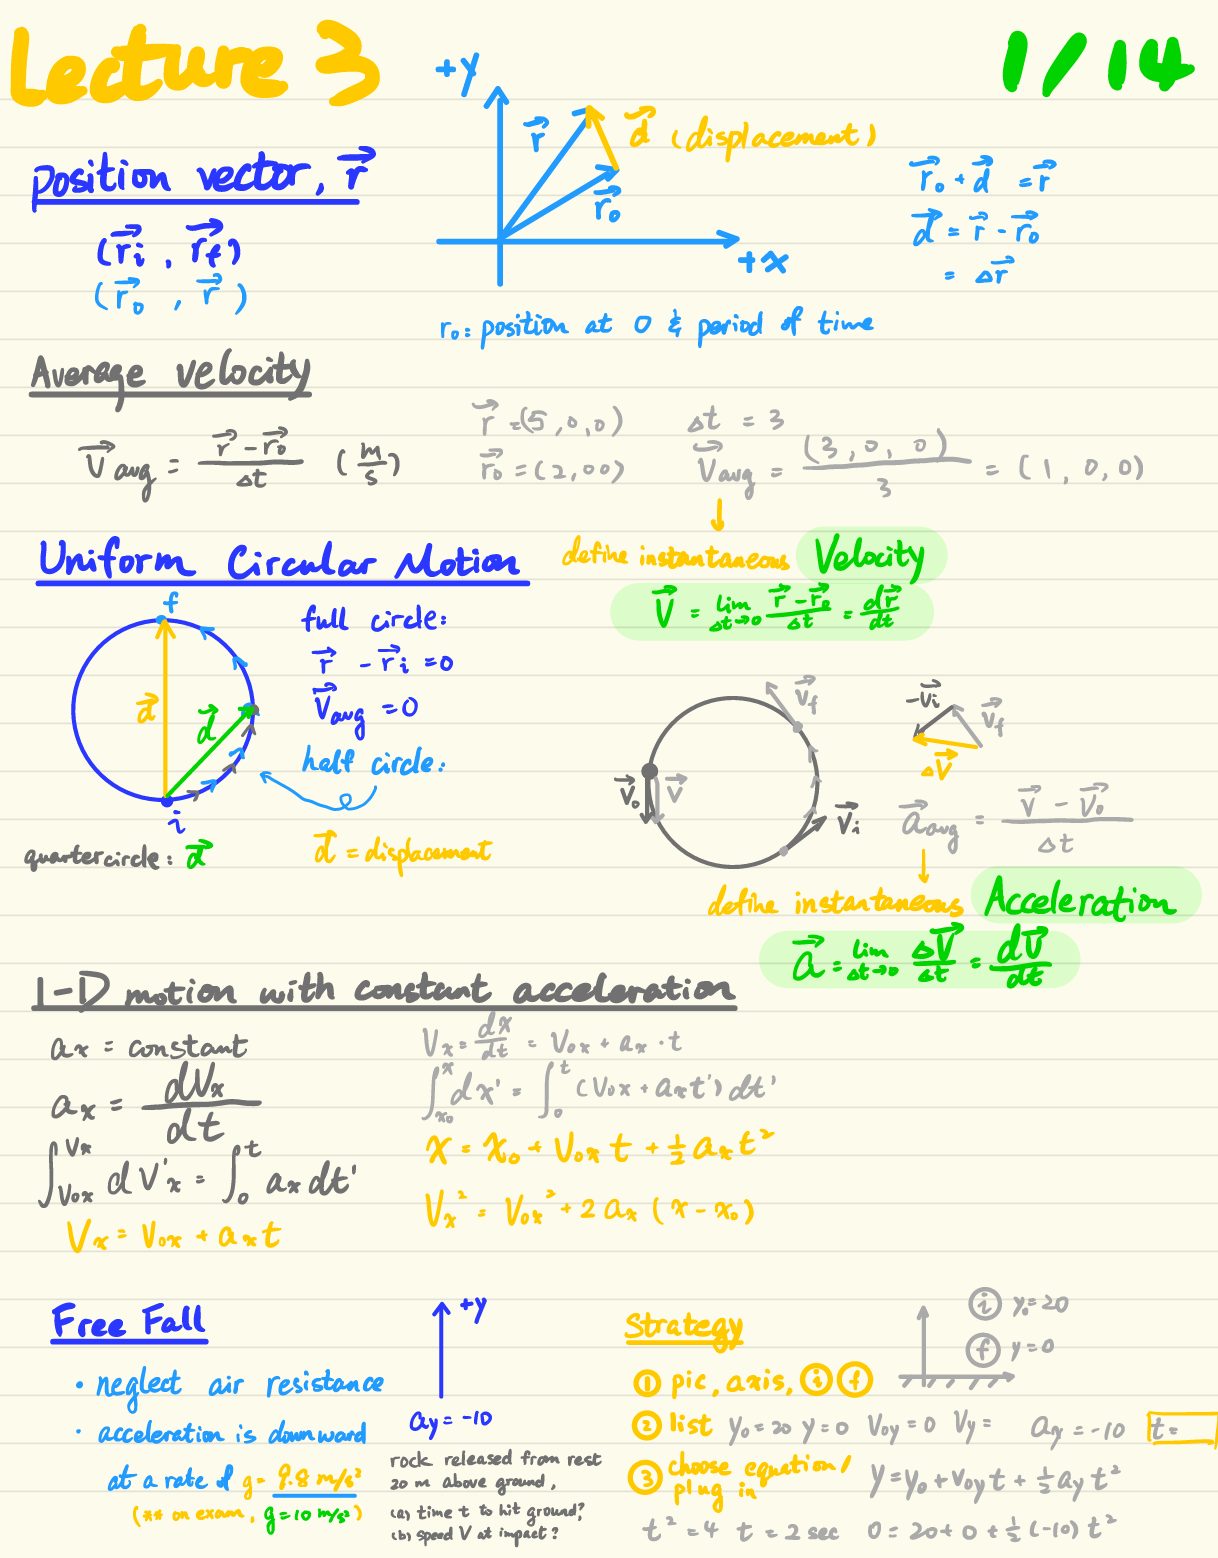 Lecture 3
1/14
position vector, r⃗
(r⃗i , r⃗f)
(r⃗o , r⃗ )
+y
r⃗
d⃗ (displacement)
r⃗o
+x
r⃗o + d⃗ = r⃗
d⃗ = r⃗ - r⃗o
= Δr⃗
ro: position at 0 & period of time
Average velocity
V⃗avg = (r⃗ - r⃗o)/Δt (m/s)
r⃗ = (5,0,0) Δt = 3
r⃗o = (2,00) V⃗avg = (3, 0, 0)/3 = (1, 0, 0)
define instantaneous Velocity
V⃗ = lim Δt→0 (r⃗ - r⃗o)/Δt = dr⃗/dt
Uniform Circular Motion
f
d⃗
d⃗
i
full circle:
r⃗ - r⃗i = 0
V⃗avg = 0
half circle:
d⃗ = displacement
quarter circle: d⃗
V⃗f
V⃗o
V⃗
V⃗i
-V⃗i
V⃗f
ΔV⃗
a⃗avg = (V⃗ - V⃗o)/Δt
define instantaneous Acceleration
a⃗ = lim Δt→0 ΔV⃗/Δt = dV⃗/dt
1-D motion with constant acceleration
ax = constant
ax = dVx/dt
∫Vox^Vx dV'x = ∫0^t ax dt'
Vx = Vox + axt
Vx = dx/dt = Vox + ax · t
∫xo^x dx' = ∫0^t (Vox + axt') dt'
x = xo + Vox t + ½ ax t²
Vx² = Vox² + 2 ax (x - xo)
Free Fall
· neglect air resistance
· acceleration is downward
at a rate of g = 9.8 m/s²
(** on exam, g=10 m/s²)
+y
ay = -10
rock released from rest
20 m above ground,
(a) time t to hit ground?
(b) speed V at impact?
Strategy
① pic, axis, ⓘ ⓕ
ⓘ yo = 20
ⓕ y = 0
② list yo = 20 y = 0 Voy = 0 Vy = ay = -10 t =
③ choose equation/
plug in
y = yo + voy t + ½ ay t²
t² = 4 t = 2 sec 0 = 20 + 0 + ½ (-10) t²